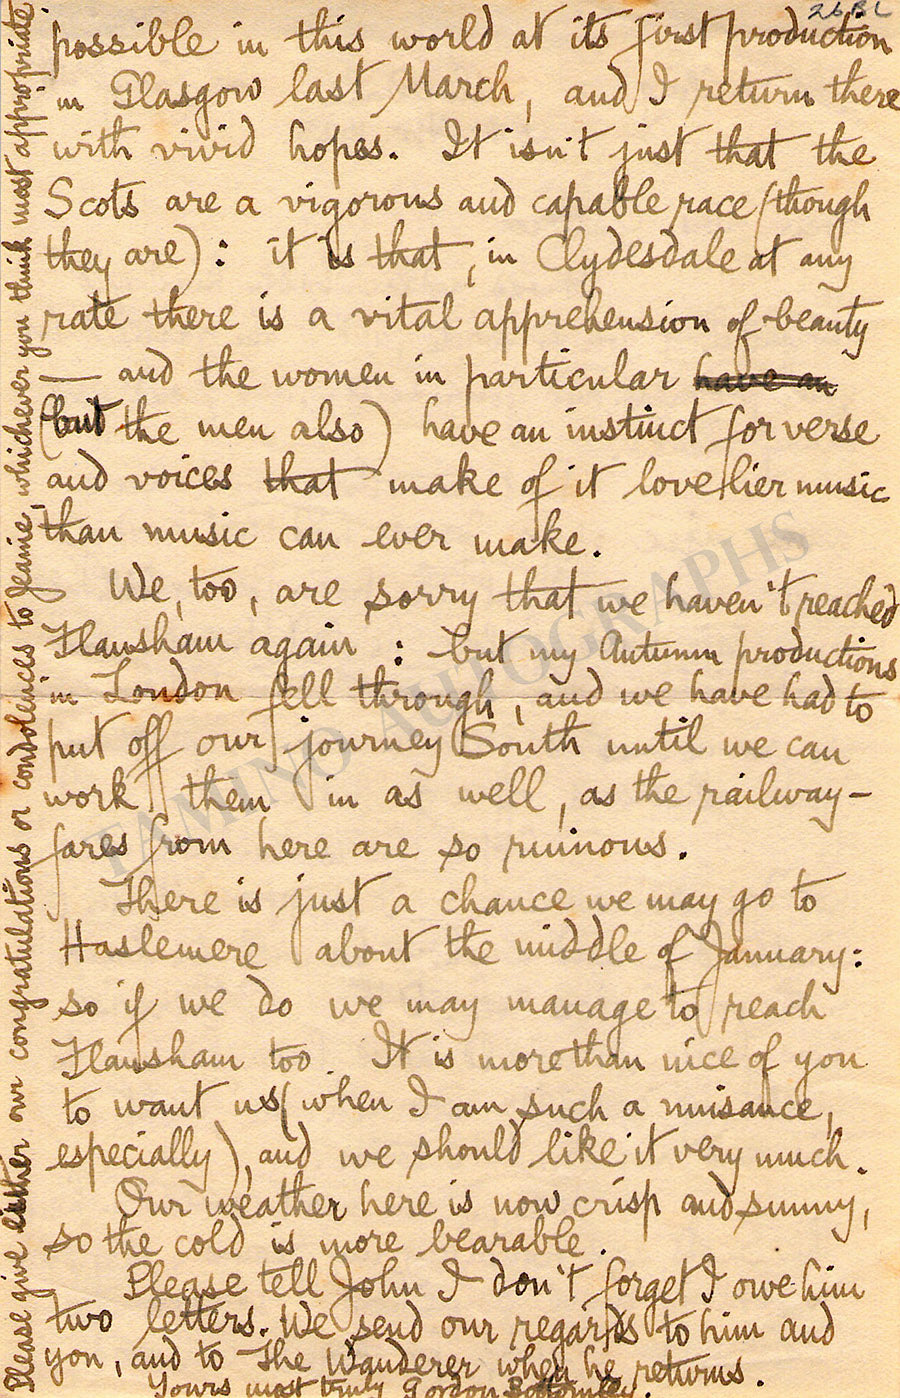 26 BL
possible in this world at its first production
in Glasgow last March, and I return there
with vivid hopes. It isn't just that the
Scots are a vigorous and capable race (though
they are): it is that, in Clydesdale at any
rate there is a vital apprehension of beauty
— and the women in particular have an
(but the men also) have an instinct for verse
and voices that make of it lovelier music
than music can ever make.
We, too, are sorry that we haven't reached
Flansham again: but my Autumn productions
in London fell through, and we have had to
put off our journey South until we can
work them in as well, as the railway-
fares from here are so ruinous.
There is just a chance we may go to
Haslemere about the middle of January:
so if we do we may manage to reach
Flansham too. It is more than nice of you
to want us (when I am such a nuisance,
especially), and we should like it very much.
Our weather here is now crisp and sunny,
so the cold is more bearable.
Please tell John I don't forget I owe him
two letters. We send our regards to him and
you, and to The Wanderer when he returns.
Yours most truly Gordon Bottomley.
Please give either our congratulations or condolences to Jeanie, whichever you think most appropriate.
TAMINO AUTOGRAPHS